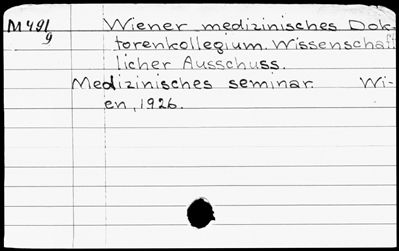 M491 Wiener medizinisches Dok-
9 torenkollegium. Wissenschaft
licher Ausschuss.
Medizinisches seminar. Wi-
en, 1926.